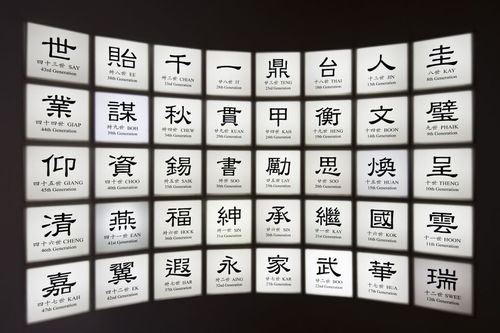 圭
八世 KAY
8th Generation
璧
九世 PHAIK
9th Generation
呈
十世 THENG
10th Generation
雲
十一世 HOON
11th Generation
瑞
十二世 SWEE
12th Generation
人
十三世 JIN
13th Generation
文
十四世 BOON
14th Generation
煥
十五世 HUAN
15th Generation
國
十六世 KOK
16th Generation
華
十七世 HUA
17th Generation
台
十八世 THAI
18th Generation
衡
十九世 HENG
19th Generation
思
SOO
20th Generation
繼
廿一世
21st Generation
武
廿二世 BOO
22nd Generation
鼎
廿三世 TENG
23rd Generation
甲
廿四世 KAH
24th Generation
勵
廿五世 LAY
25th Generation
承
廿六世
26th Generation
家
廿七世 KAR
27th Generation
一
廿八世 IT
28th Generation
貫
廿九世 KUAN
29th Generation
書
卅世 SOO
30th Generation
紳
卅一世 SIN
31st Generation
永
卅二世
32nd Generation
千
卅三世 CHIAN
33rd Generation
秋
卅四世 CHEW
34th Generation
錫
卅五世 SAIK
35th Generation
福
卅六世 HOCK
36th Generation
遐
卅七世 HAR
37th Generation
貽
卅八世 EE
38th Generation
謀
卅九世 BOH
39th Generation
資
四十世 CHOO
40th Generation
燕
四十一世 EAN
41st Generation
翼
四十二世 EK
42nd Generation
世
四十三世 SAY
43rd Generation
業
四十四世 GIAP
44th Generation
仰
四十五世 GIANG
45th Generation
清
四十六世 CHENG
46th Generation
嘉
四十七世 KAH
47th Generation